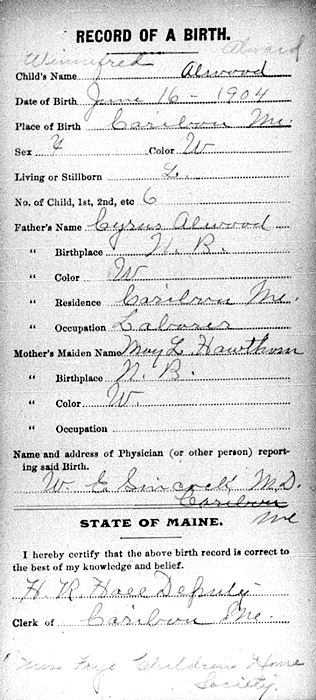 RECORD OF A BIRTH.
Winnifred Alward
Child's Name Alwood
Date of Birth June 16 - 1904
Place of Birth Caribou Me.
Sex F Color W
Living or Stillborn L.
No. of Child, 1st, 2nd, etc 6
Father's Name Cyrus Alwood
" Birthplace N. B.
" Color W
" Residence Caribou Me.
" Occupation Laborer
Mother's Maiden Name May L. Hawthorn
" Birthplace N. B.
" Color W.
" Occupation
Name and address of Physician (or other person) report-
ing said Birth.
W E Sincock M.D.
Caribou
Me
STATE OF MAINE.
I hereby certify that the above birth record is correct to
the best of my knowledge and belief.
H. R. Hall Deputy
Clerk of Caribou Me.
Miss Childrens Home
Society